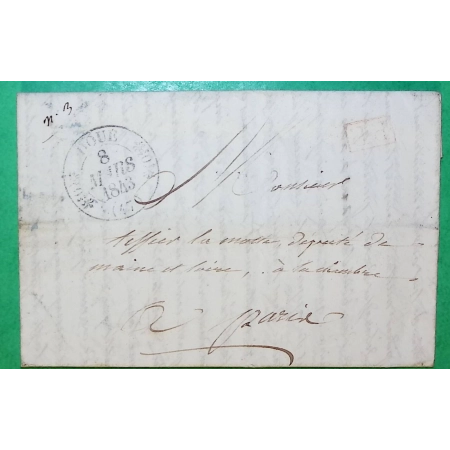 n. 3
8
MARS
1843
(47)
Monsieur
teffier la motte deputé de
maine et loire, à la chambre
a paris